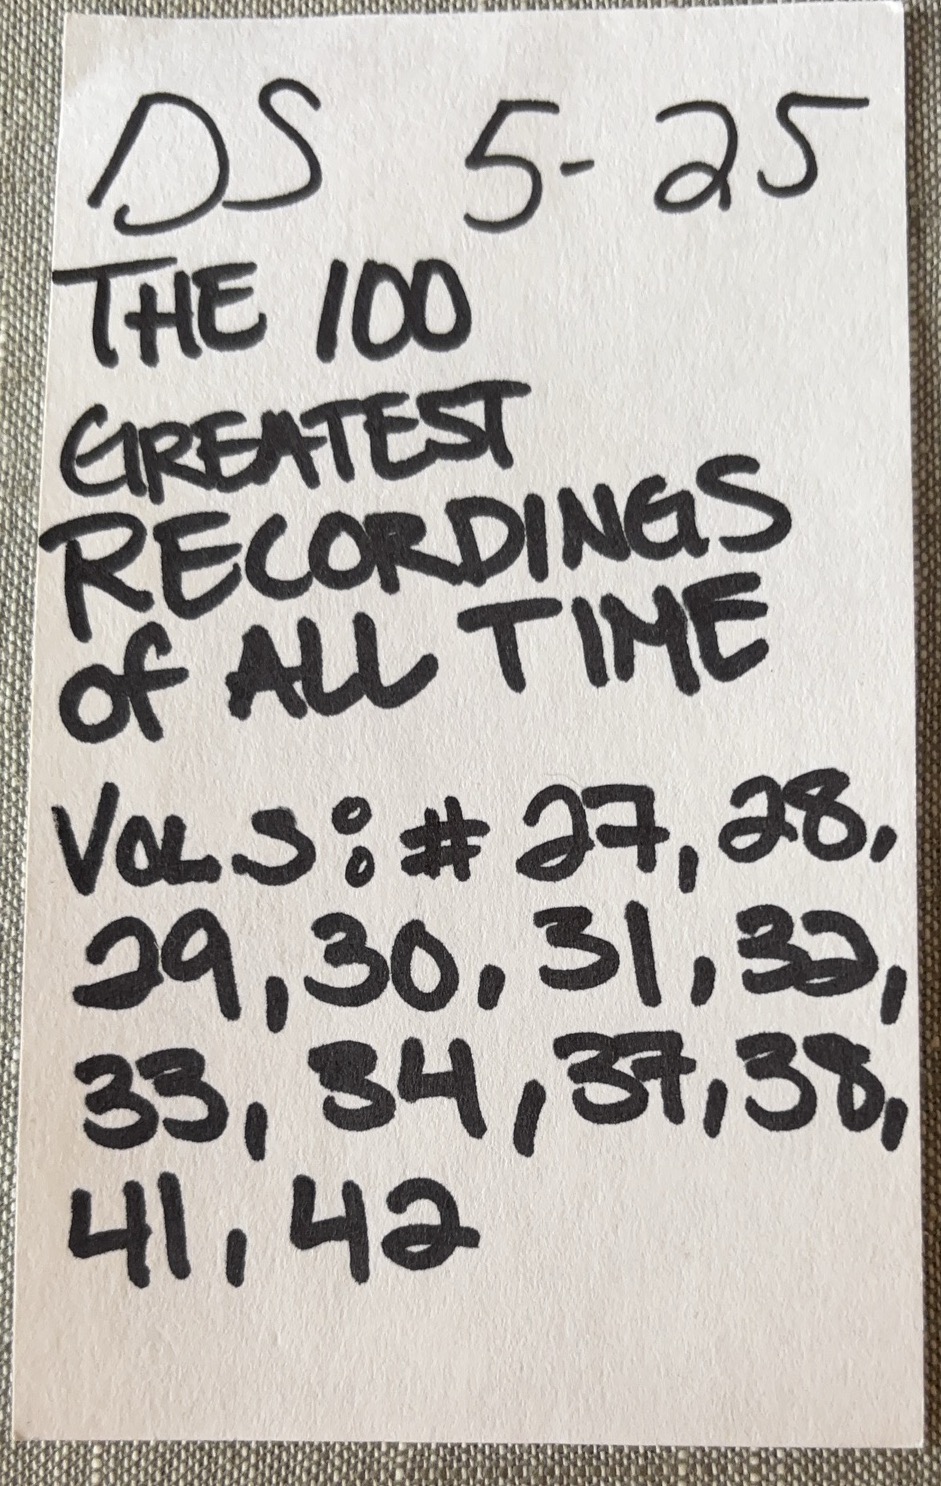 DS 5-25
THE 100
GREATEST
RECORDINGS
of ALL TIME
VOLS: # 27, 28,
29, 30, 31, 32,
33, 34, 37, 38,
41, 42